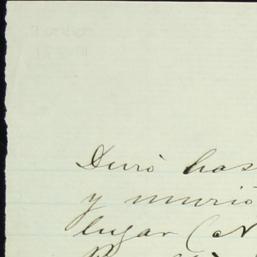 Duró has
y murió
lugar (N